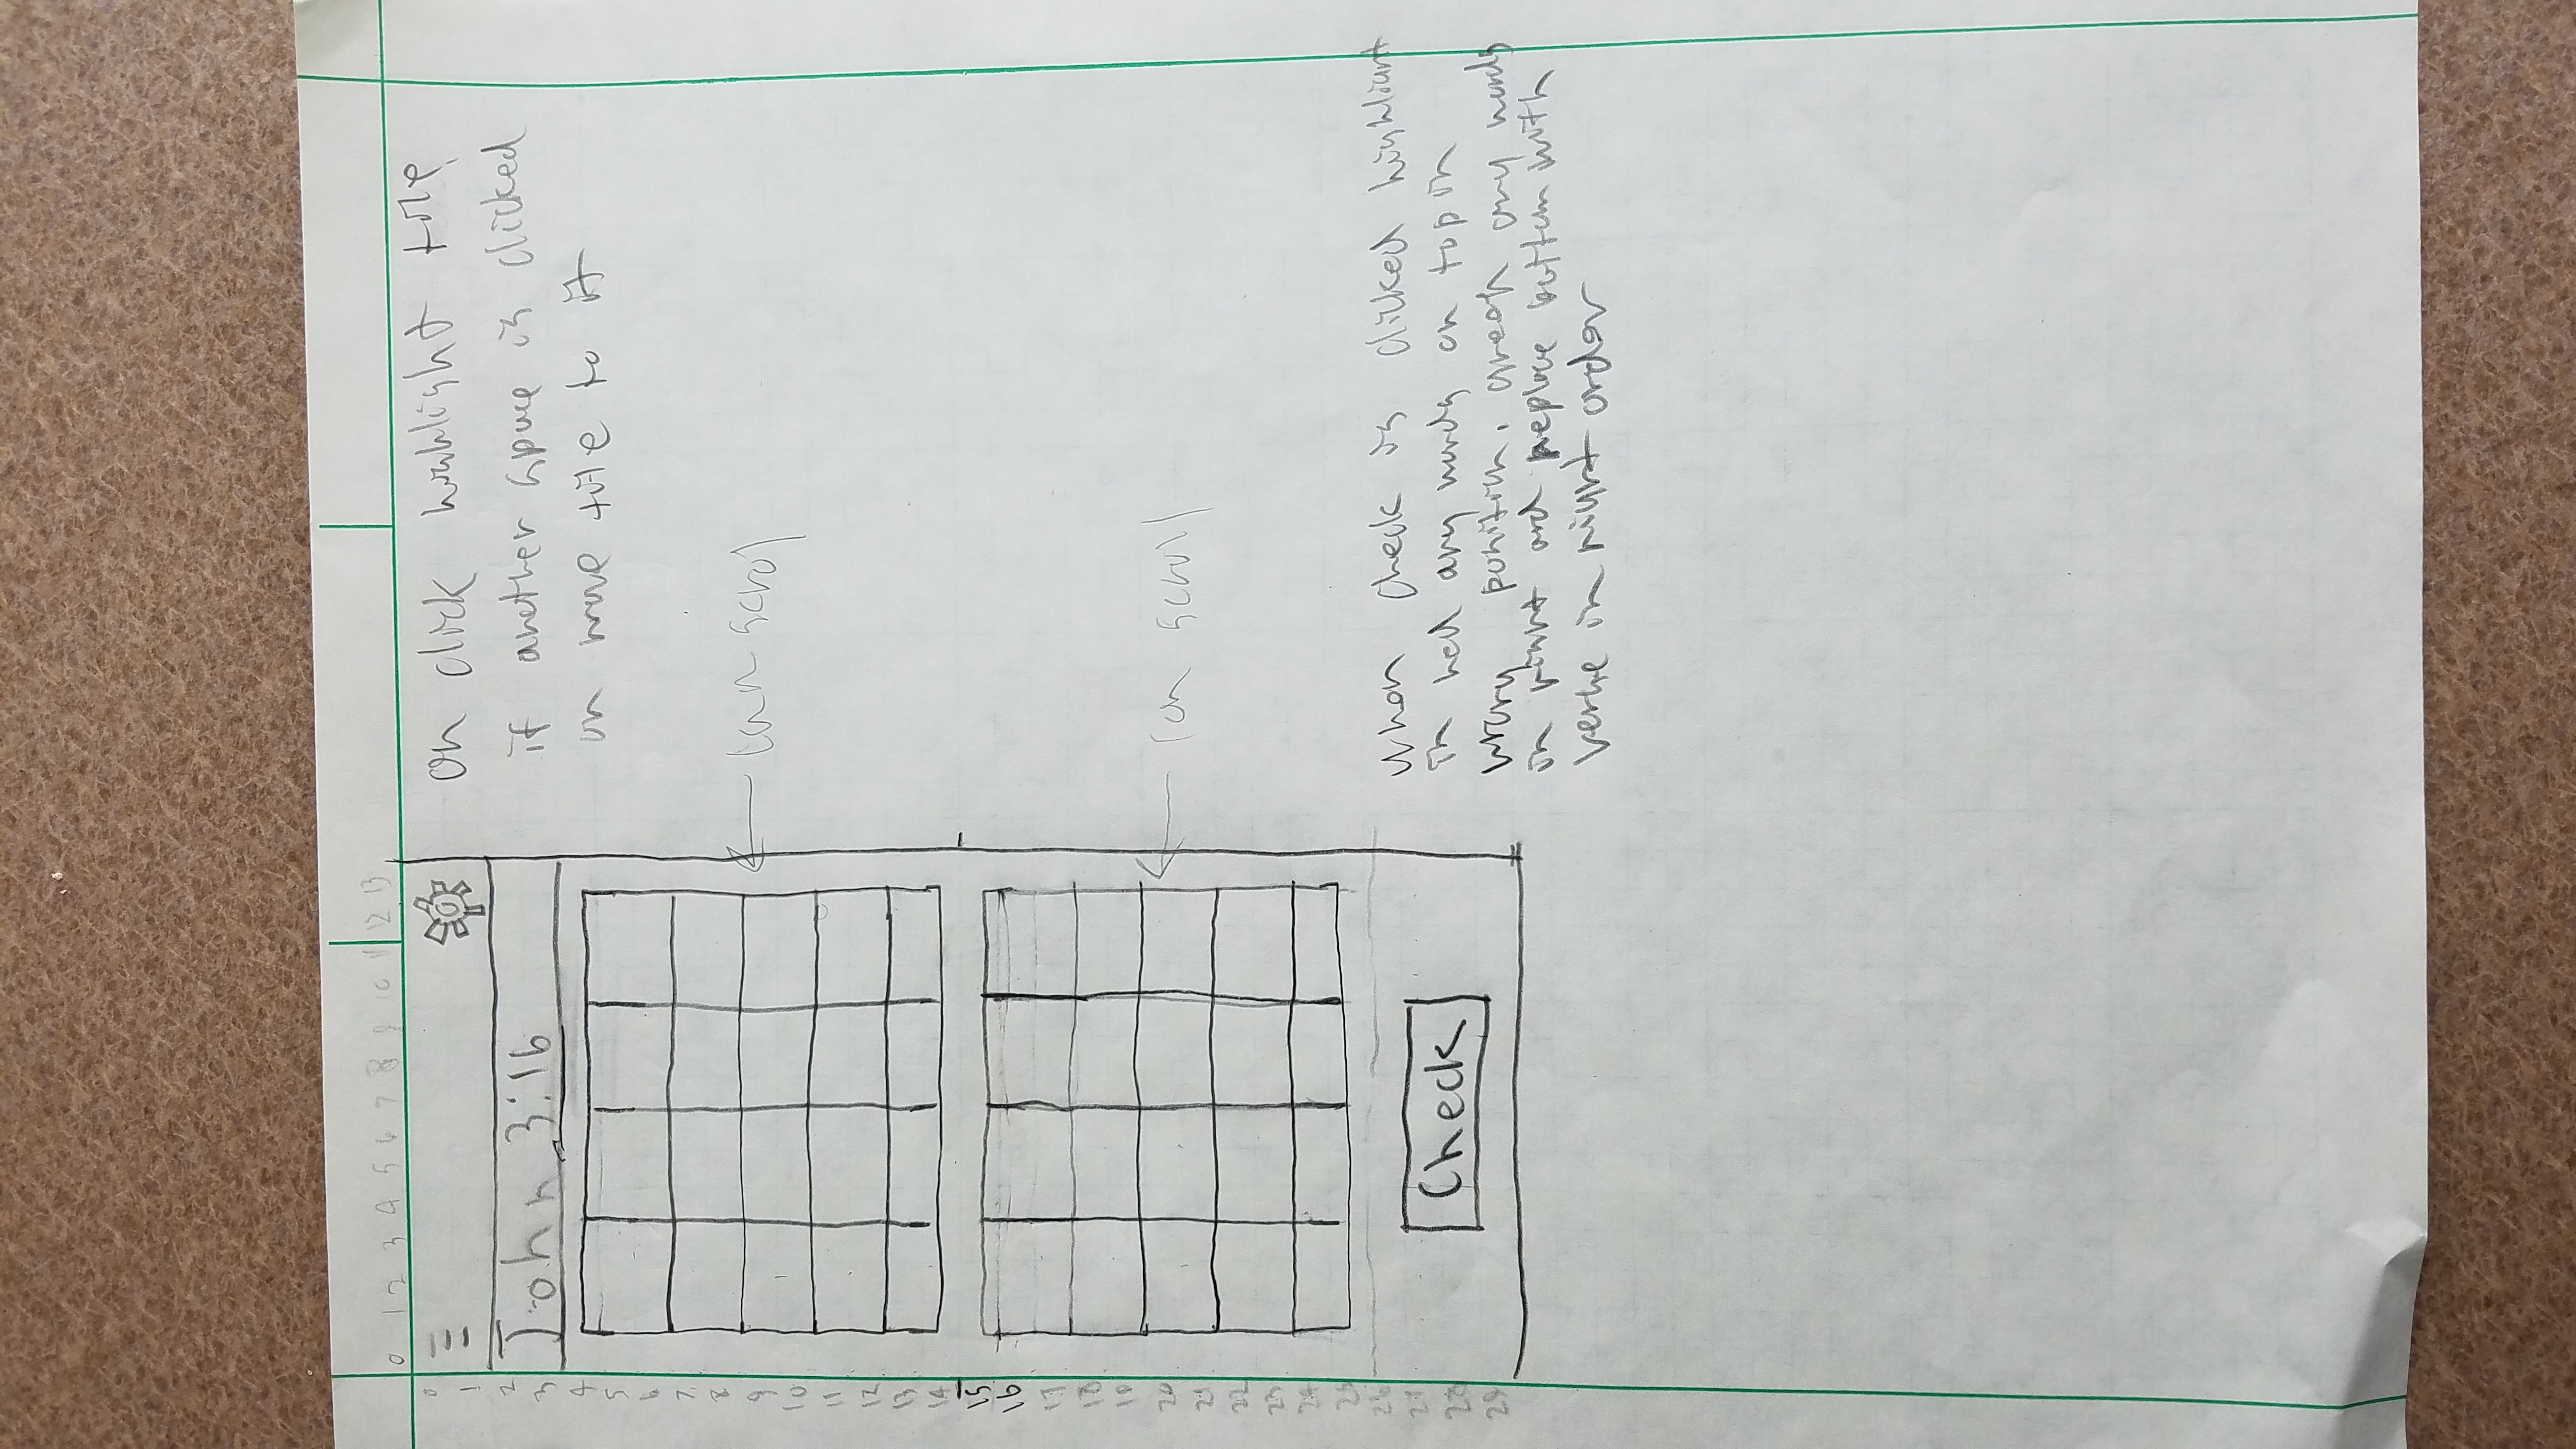 0 1 2 3 4 5 6 7 8 9 10 11 12 13
0
1
2
3
4
5
6
7
8
9
10
11
12
13
14
15
16
17
18
19
20
21
22
23
24
25
26
27
28
29
John 3:16
Check
on click highlight tile
if another space is clicked
on move tile to it
can scrol
can scroll
when check is clicked highlight
in red any words on top in
wrong position, green any words
in right and replace bottom with
verse in right order